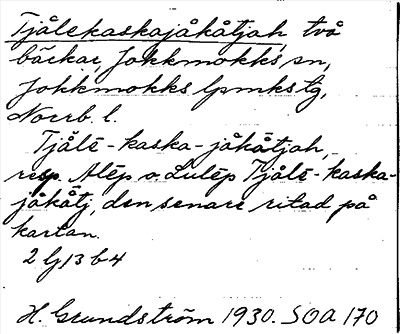 Tjålekaskajåkåtjah, två
bäckar, Jokkmokks sn,
Jokkmokks lpmkstg,
Norrb. l.
Tjålē-kaska-jåkåtjah,
resp. Alēp o. Lulēp Tjålē-kaska-
jåkåtj, den senare ritad på
kartan.
2 lj 13 b 4
H. Grundström 1930. SOA 170